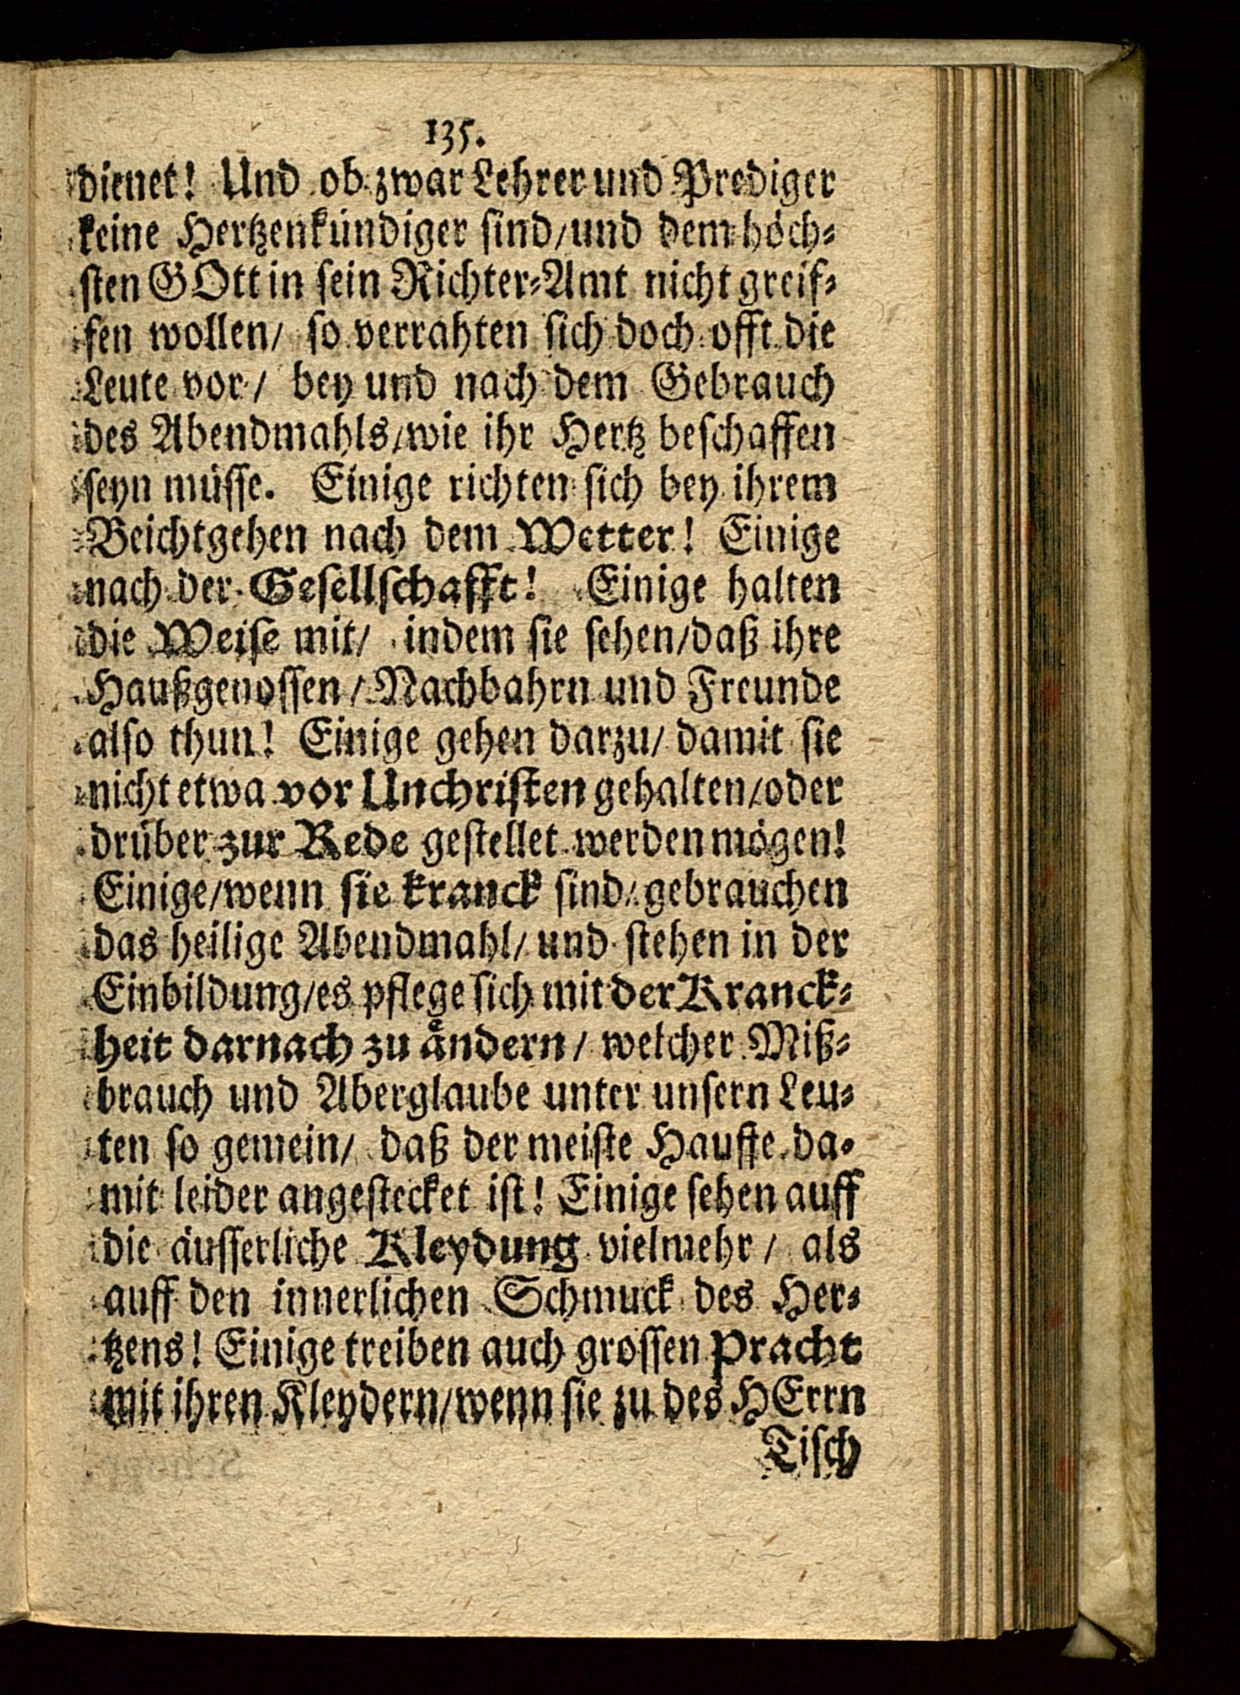 135.
dienet! Und ob zwar Lehrer und Prediger
keine Hertzenkündiger sind/und dem höch-
sten GOtt in sein Richter-Amt nicht greif-
fen wollen/ so verrahten sich doch offt die
Leute vor/ bey und nach dem Gebrauch
des Abendmahls/wie ihr Hertz beschaffen
seyn müsse. Einige richten sich bey ihrem
Beichtgehen nach dem Wetter! Einige
nach der Gesellschafft! Einige halten
die Weise mit/ indem sie sehen/daß ihre
Haußgenossen/Nachbahrn und Freunde
also thun! Einige gehen darzu/ damit sie
nicht etwa vor Unchristen gehalten/oder
drüber zur Rede gestellet werden mögen!
Einige/wenn sie kranck sind/gebrauchen
das heilige Abendmahl/ und stehen in der
Einbildung/es pflege sich mit der Kranck-
heit darnach zu ändern/ welcher Miß-
brauch und Aberglaube unter unsern Leu-
ten so gemein/ daß der meiste Hauffe da-
mit leider angestecket ist! Einige sehen auff
die äusserliche Kleydung vielmehr/ als
auff den innerlichen Schmuck des Her-
tzens! Einige treiben auch grossen Pracht
mit ihren Kleydern/wenn sie zu des HErrn
Tisch